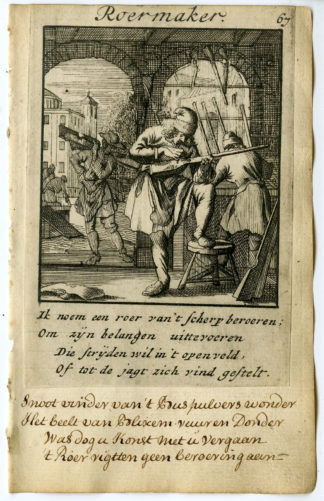 Roermaker. 67
Ik noem een roer van't scherp beroeren;
Om zyn belangen uittevoeren
Die stryden wil in't open veld,
Of tot de jagt zich vind gestelt.
Snoot vinder van't Buspulvers wonder
Het beelt van Blixem vuur en Donder
Was dog u Konst met u Vergaan
't Roer rigtten geen beroering aan